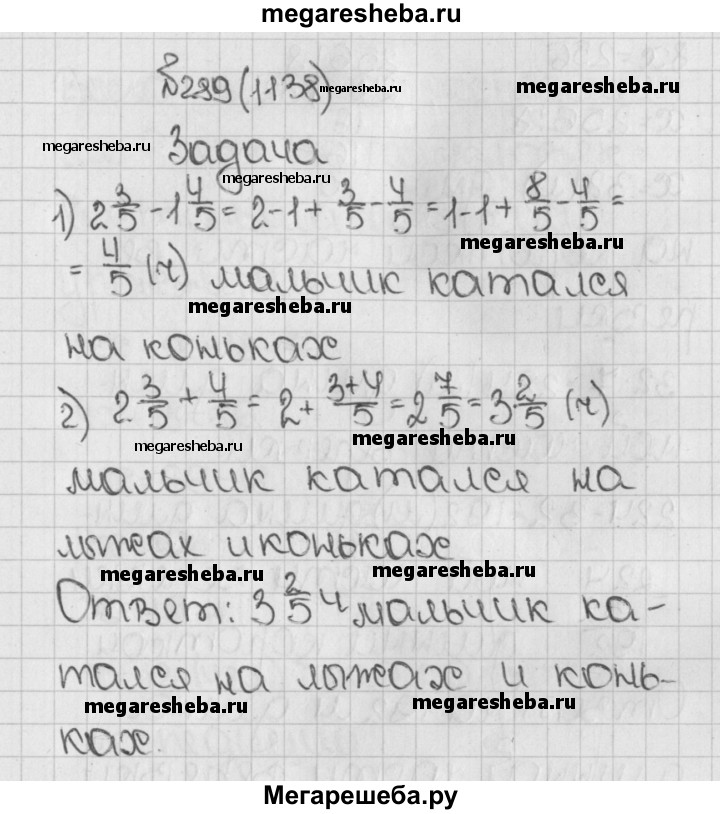 megaresheba.ru
№299(1138) megaresheba.ru megaresheba.ru
megaresheba.ru Задача
megaresheba.ru
1) 2 3/5 - 1 4/5 = 2-1+ 3/5 - 4/5 = 1-1+ 8/5 - 4/5 =
megaresheba.ru
= 4/5 (ч) мальчик катался
megaresheba.ru
на коньках
2) 2 3/5 + 4/5 = 2+ 3+4/5 = 2 7/5 = 3 2/5 (ч)
megaresheba.ru megaresheba.ru
мальчик катался на
лыжах и коньках
megaresheba.ru megaresheba.ru
Ответ: 3 2/5 ч мальчик ка-
тался на лыжах и конь-
megaresheba.ru megaresheba.ru
ках.
Мегарешеба.ру